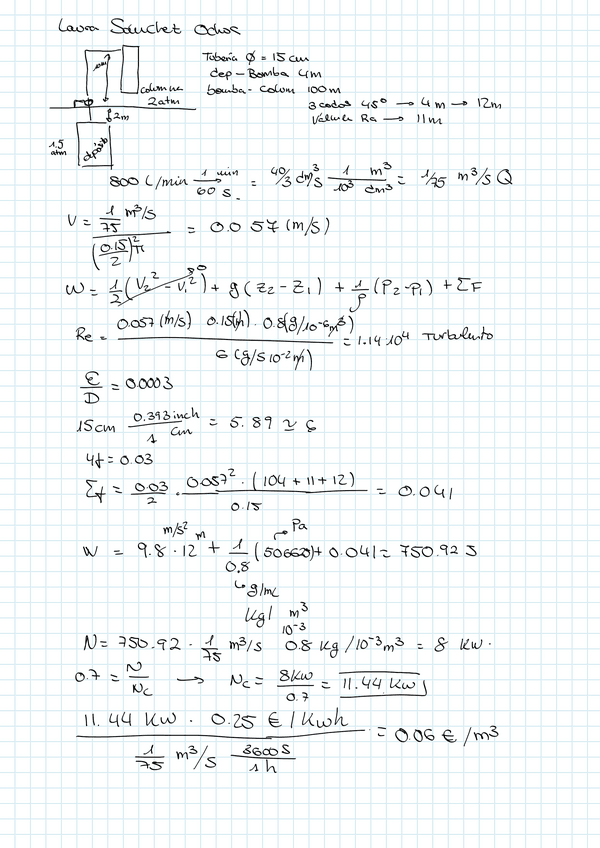 Laura Sánchez Ochoa
Tubería Ø = 15 cm
dep - Bomba 4m
bomba - Colum 100m
3 codos 45° → 4 m → 12m
Válvula Ra → 11m
columna
2 atm
2m
1.5
atm
depósito
800 L/min 1 min/60 s = 40/3 dm³/s 1/10³ m³/dm³ = 1/75 m³/s Q
V = (1/75 m³/s)/((0.15/2)² π) = 0.057 (m/s)
W = 1/2 (V₂² - V₁²)→0 + g (z₂ - z₁) + 1/ρ (P₂ - P₁) + ΣF
Re = (0.057 (m/s) 0.15 (m) · 0.8 (g/10⁻⁶ m³))/(6 (g/s 10⁻² m)) = 1.14·10⁴ Turbulento
ε/D = 0.0003
15 cm 0.393 inch/1 cm = 5.89 ≃ 6
4f = 0.03
Σf = 0.03/2 · (0.057² · (104 + 11 + 12))/0.15 = 0.041
m/s² m → Pa
W = 9.8 · 12 + 1/0.8 (506620) + 0.041 = 750.92 J
↳ g/mL
Kg/ m³
10⁻³
N = 750.92 · 1/75 m³/s 0.8 kg/10⁻³ m³ = 8 KW.
0.7 = N/Nc → Nc = 8KW/0.7 = 11.44 KW
(11.44 KW · 0.25 €/KWh)/(1/75 m³/s 3600 s/1 h) = 0.06 €/m³